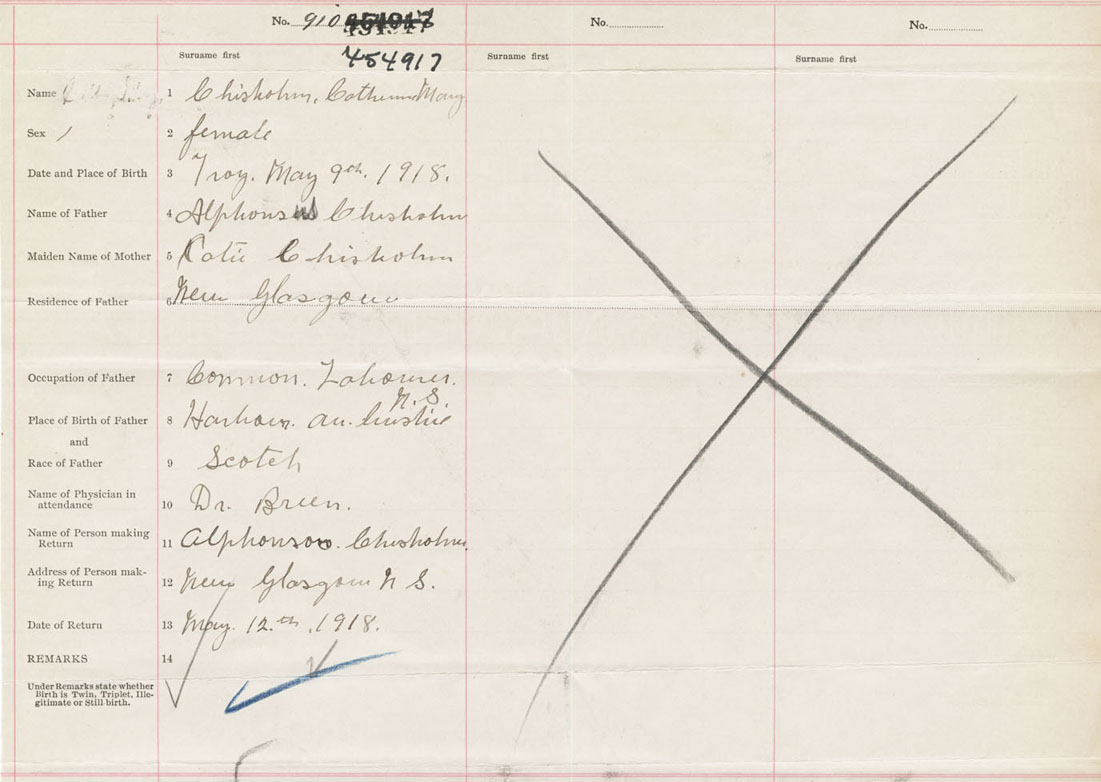 No. 910 454917
No.
No.
454917
Surname first
Surname first
Surname first
Name 1 Chisholm, Catherine Mary
Sex 2 female
Date and Place of Birth 3 Troy. May 9th. 1918.
Name of Father 4 Alphonsus Chisholm
Maiden Name of Mother 5 Katie Chisholm
Residence of Father 6 New Glasgow
Occupation of Father 7 Common. Labourer.
N.S.
Place of Birth of Father 8 Harbour. au.
and
Race of Father 9 Scotch
Name of Physician in
attendance 10 Dr. Breen.
Name of Person making
Return 11 Chisholm.
Address of Person mak-
ing Return 12 New Glasgow N S.
Date of Return 13 May. 12.th, 1918.
REMARKS 14
Under Remarks state whether
Birth is Twin, Triplet, Ille-
gitimate or Still-birth.